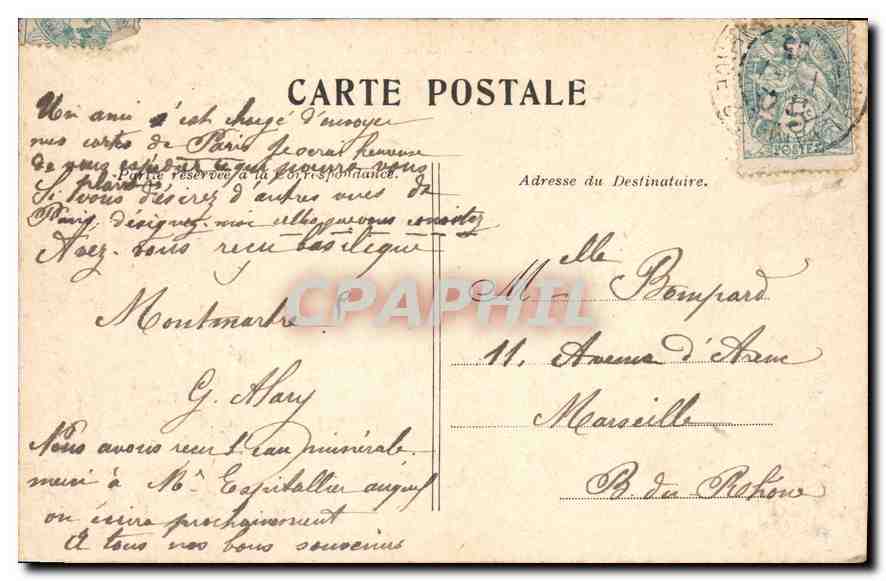 CARTE POSTALE
Un ami s'est chargé d'envoyer
mes cartes de Paris je serai heureuse
de vous espérer que pourra vous
Partie réservée à la Correspondance.
plaire
Si vous désirez d'autres vues de
Paris, désignez-moi celles que vous
Avez-vous reçu basilique
Montmartre ?
G. Alary
Nous avons reçu l'eau minérale
merci à Mr Espitallier auquel
on écrira prochainement
A tous nos bons souvenirs
Adresse du Destinataire.
Melle Bompard
11, Avenue d'Arenc
Marseille
B. du Rhône
POSTES
CPAPHIL